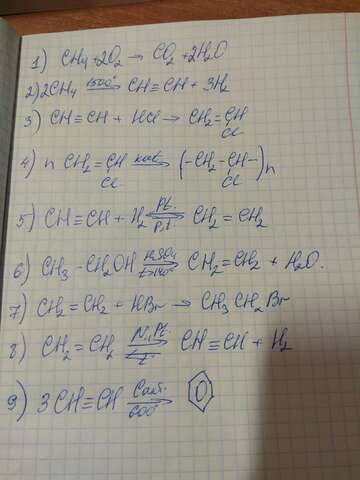 1) CH₄ + 2O₂ → CO₂ + 2H₂O
2) 2CH₄ 1500° → CH≡CH + 3H₂
3) CH≡CH + HCl → CH₂=CH
Cl
4) n CH₂=CH кат. → (-CH₂-CH-)n
Cl Cl
5) CH≡CH + H₂ Pt. ⇌ P,t CH₂=CH₂
6) CH₃-CH₂OH H₂SO₄ ⇌ t>140° CH₂=CH₂ + H₂O.
7) CH₂=CH₂ + HBr → CH₃CH₂Br
8) CH₂=CH₂ Ni,Pt. ⇌ t CH≡CH + H₂
9) 3CH≡CH Cакт. → 600°